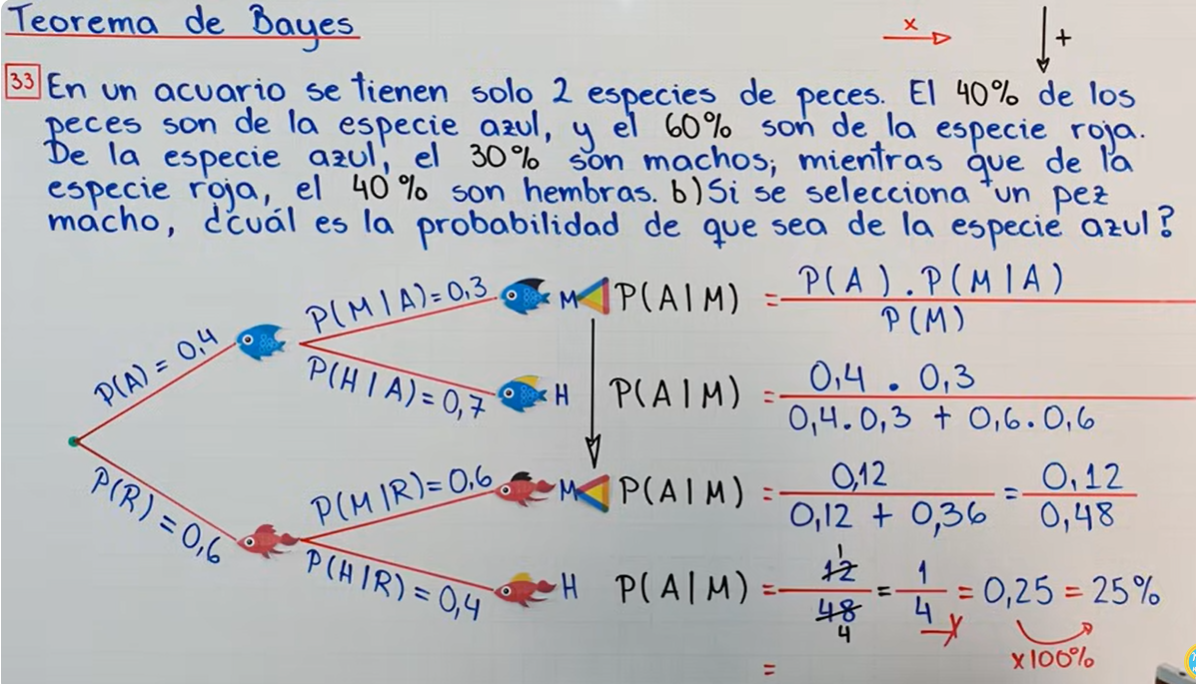 Teorema de Bayes
x
+
33 En un acuario se tienen solo 2 especies de peces. El 40% de los
peces son de la especie azul, y el 60% son de la especie roja.
De la especie azul, el 30% son machos; mientras que de la
especie roja, el 40% son hembras. b) Si se selecciona un pez
macho, ¿cuál es la probabilidad de que sea de la especie azul?
P(A) = 0,4
P(R) = 0,6
P(M|A)=0,3
M
P(H/A)=0,7
H
P(M/R)=0,6
M
P(H/R)=0,4
H
P(A|M) = P(A).P(M|A)
P(M)
P(A|M) = 0,4 . 0,3
0,4.0,3 + 0,6.0,6
P(A|M) = 0,12 = 0,12
0,12 + 0,36 0,48
1
P(A|M) = 12 = 1 = 0,25 = 25%
48 4
4
x100%
=